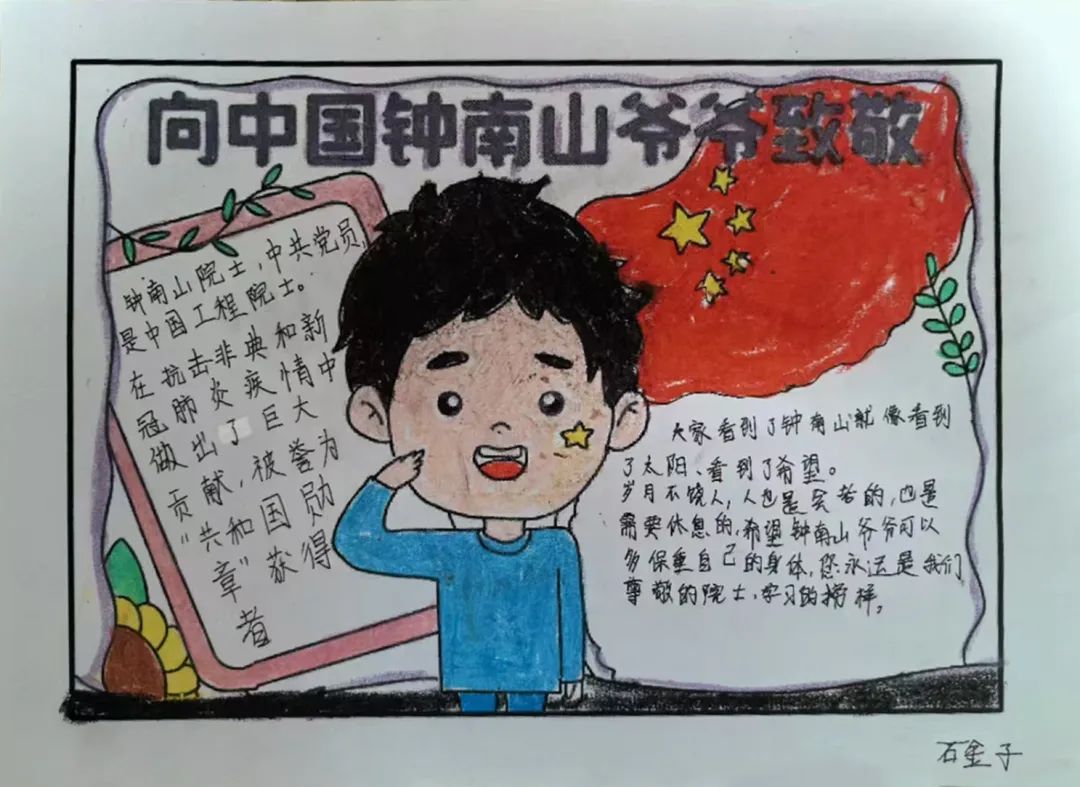 向中国钟南山爷爷致敬
钟南山院士，中共党员，
是中国工程院士。
在抗击非典和新
冠肺炎疾情中
做出了巨大
贡献，被誉为
“共和国勋
章”获得
者
大家看到了钟南山就像看到
了太阳、看到了希望。
岁月不饶人，人也是会老的，也是
需要休息的，希望钟南山爷爷可以
多保重自己的身体，您永远是我们
尊敬的院士，学习的榜样。
石金子